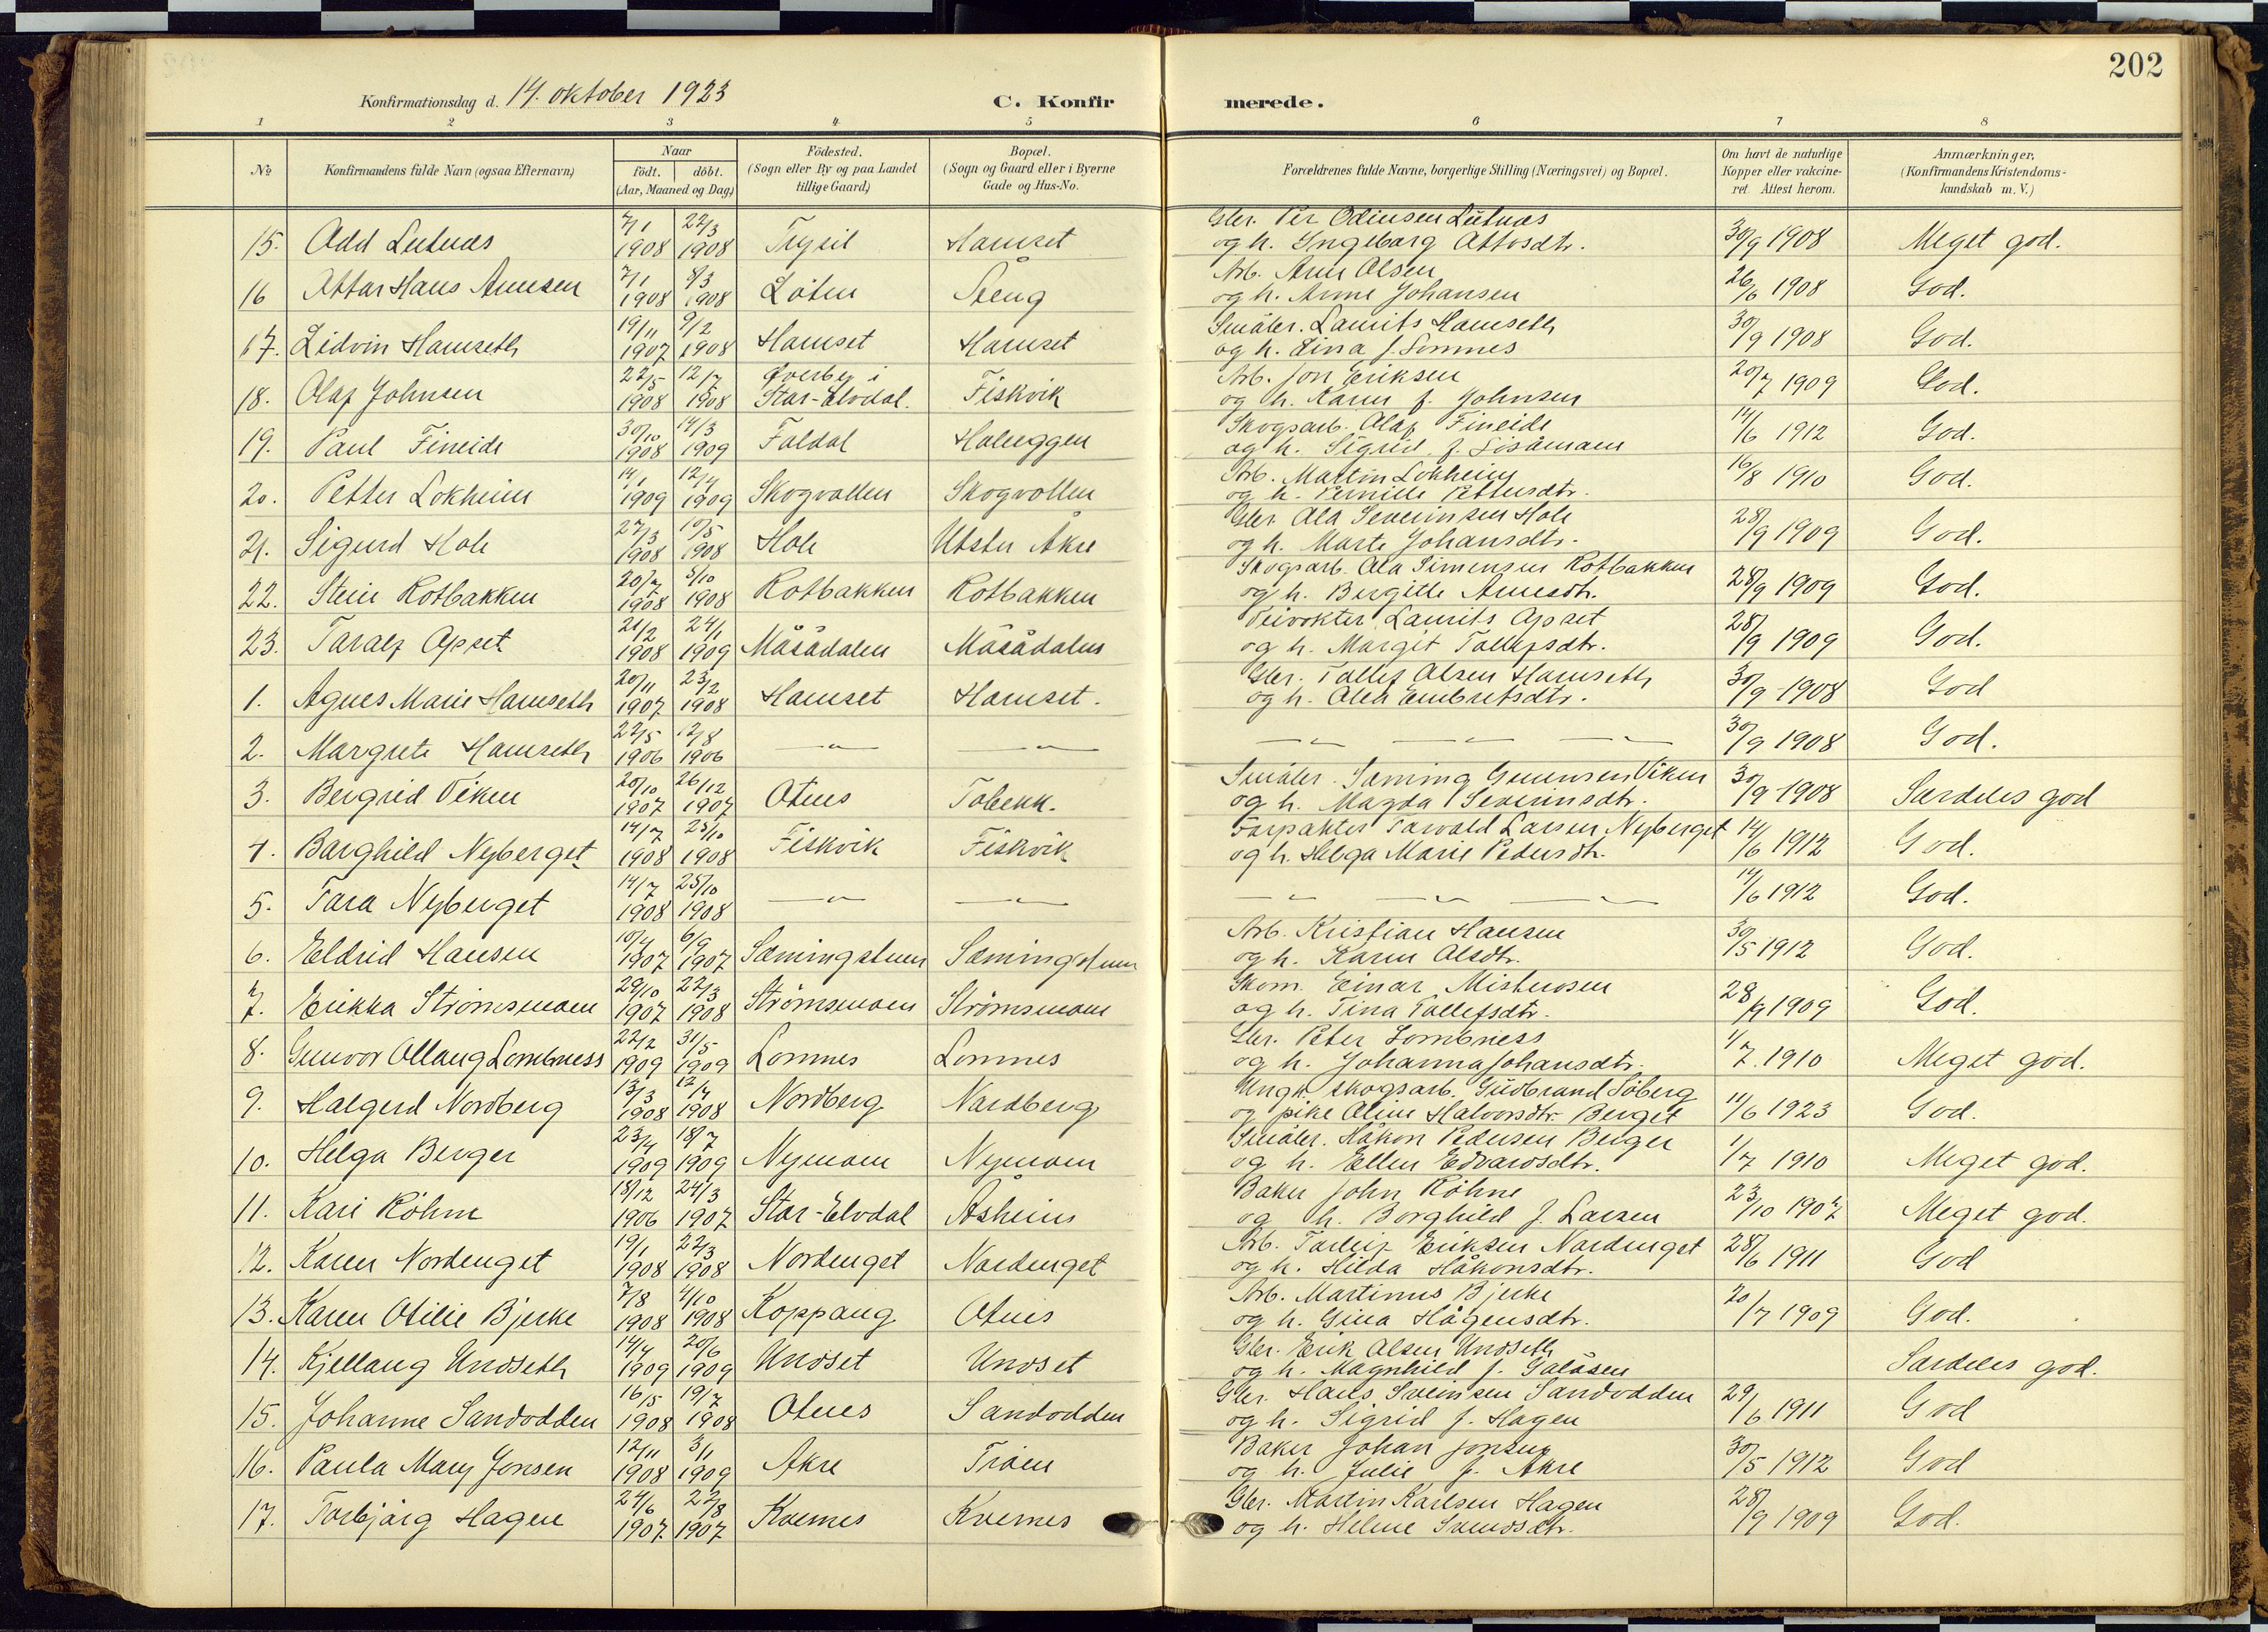 202
Konfirmationsdag d. 14. oktober 1923 C. Konfirmerede.
1 2 3 4 5 6 7 8
№ Konfirmandens fulde Navn (ogsaa Efternavn) Naar födt. döbt. (Aar, Maaned og Dag) Födested. (Sogn eller By og paa Landet tillige Gaard) Bopæl. (Sogn og Gaard eller i Byerne Gade og Hus-No. Forældrenes fulde Navne, borgerlige Stilling (Næringsvei) og Bopæl. Om havt de naturlige Kopper eller vakcineret. Attest herom. Anmærkninger, (Konfirmandens Kristendomskundskab m. V.)
15. Odd Lutnæs 7/1 1908 22/3 1908 Trysil Hamset Gbr. Per Odinsen Lutnæs og h. Ingeborg Ottosdtr. 30/9 1908 Meget god.
16 Ottar Hans Arnesen 7/1 1908 8/3 1908 Löten Steng Arb. Arne Olsen og h. Anne Johansen 26/6 1908 God.
17. Lidvin Hamseth 19/11 1907 9/2 1908 Hamset Hamset Småbr. Laurits Hamseth og h. Lina f. Lomnes 30/9 1908 God.
18. Olaf Johnsen 22/5 1908 12/7 1908 Øverby i Stor-Elvdal. Fiskvik Arb. Jon Eriksen og h. Karen f. Johnsen 20/7 1909 God.
19. Paul Fineide 30/10 1908 14/3 1909 Foldal Holeggen Skogsarb. Olaf Fineide og h. Sigrid f. 14/6 1912 God.
20. Petter Lokheim 14/1 1909 12/4 1909 Skogvollen Skogvollen Arb. Martin Lokheim og h. Pernille Pettersdtr. 16/8 1910 God.
21. Sigurd Hole 27/3 1908 10/5 1908 Hole Utstu Åkre Gbr. Ola Severinsen Hole og h. Marte Johansdtr. 28/9 1909 God.
22. Stein Rotbakken 20/7 1908 5/10 1908 Rotbakken Rotbakken Skogsarb. Ola Simensen Rotbakken og h. Bergitte Arnesdtr. 28/9 1909 God.
23. Toralf Opset 21/2 1908 24/1 1909 Måsådalen Måsådalen Veivokter Laurits Opset og h. Margit Tollefsdtr. 28/9 1909 God.
1. Agnes Marie Hamseth 20/11 1907 23/2 1908 Hamset Hamset. Gbr. Tollef Olsen Hamseth og h. Olea Embretsdtr. 30/9 1908 God
2. Margrete Hamseth 22/5 1906 12/8 1906 —"— —"— —"— —"— —"— 30/9 1908 God.
3. Bergrid Viken 20/10 1907 26/12 1907 Otnes Tobekk. Småbr. Sæming Viken og h. Magda Severinsdtr. 30/9 1908 Særdeles god
4. Borghild Nyberget 14/7 1908 25/10 1908 Fiskvik Fiskvik Forpakter Torvald Larsen Nyberget og h. Helga Marie Pedersdtr. 14/6 1912 God.
5. Tora Nyberget 14/7 1908 25/10 1908 —"— —"— —"— —"— —"— 14/6 1912 God.
6. Eldrid Hansen 10/4 1907 6/9 1907 Sæmingstuen Sæmingstuen Arb. Kristian Hansen og h. Karen Olsdtr. 30/5 1912 God.
7. Erikka Strömsmoen 29/10 1907 22/3 1908 Strömsmoen Strömsmoen Skom. Einar Mistenosen og h. Tina Tollefsdtr. 28/9 1909 God.
8. Gunvor Ollaug Lombness 22/2 1909 31/5 1909 Lomnes Lomnes Gbr. Peter Lombness og h. Johanna Johansdtr. 1/7 1910 Meget god.
9. Halgerd Nordberg 13/3 1908 12/4 1908 Nordberg Nordberg Ungk. skogsarb. Gudbrand Söberg og pike Oline Halvorsdtr. Berget 11/6 1923 God.
10. Helga Berger 23/4 1909 18/7 1909 Nymoen Nymoen Småbr. Håkon Pedersen Berger og h. Ellen Edvardsdtr. 1/7 1910 Meget god.
11. Kari Röhne 18/12 1906 24/3 1907 Stor-Elvdal Åsheim Baker John Röhne og h. Borghild f. Larsen 23/10 1907 Meget god.
12. Karen Nordenget 19/1 1908 22/3 1908 Nordenget Nordenget Arb. Torleif Eriksen Nordenget og h. Hilda Håkonsdtr. 28/6 1911 God
13. Karen Otilie Bjerke 7/8 1908 4/10 1908 Koppang Otnes Arb. Martinus Bjerke og h. Gina Hågensdtr. 20/7 1909 God.
14. Kjellaug Undseth 14/4 1909 20/6 1909 Undset Undset Gbr. Erik Olsen Undseth og h. Magnhild f. Galåsen Særdeles god.
15. Johanne Sandodden 16/5 1908 19/7 1908 Otnes Sandodden Gbr. Hans Sveinsen Sandodden og h. Sigrid f. Hagen 29/6 1911 God
16. Paula Mary Jonsen 12/11 1908 3/11 1909 Åkre Troen Baker Johan Jonsen og h. Julie f. Akre 30/5 1912 God
17. Torbjörg Hagen 24/6 1907 22/8 1907 Kvernes Kvernes Gbr. Martin Karlsen Hagen og h. Helene Svendsdtr. 28/9 1909 God.